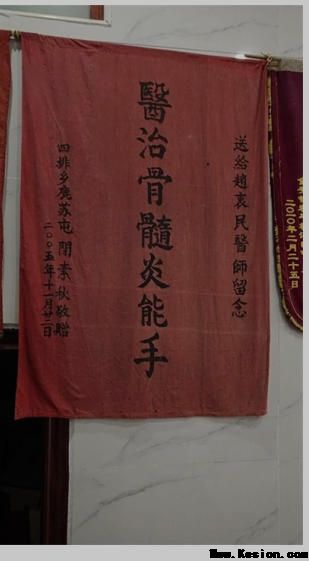 送给趙袁民醫師留念
醫治骨髓炎能手
四排乡鹿苏屯 閉素秋敬贈
二00五年十一月廿二日
二〇一〇年二月二十五日
Www.Kesion.com